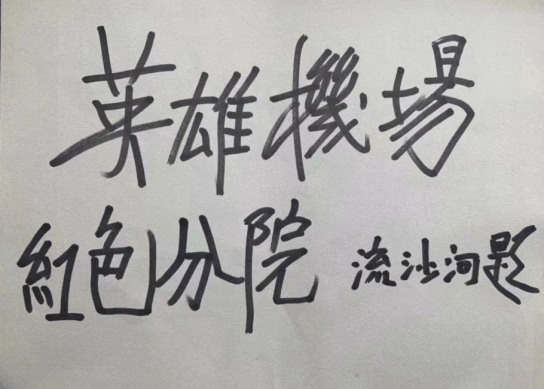 英雄機場
紅色分院 流沙河題